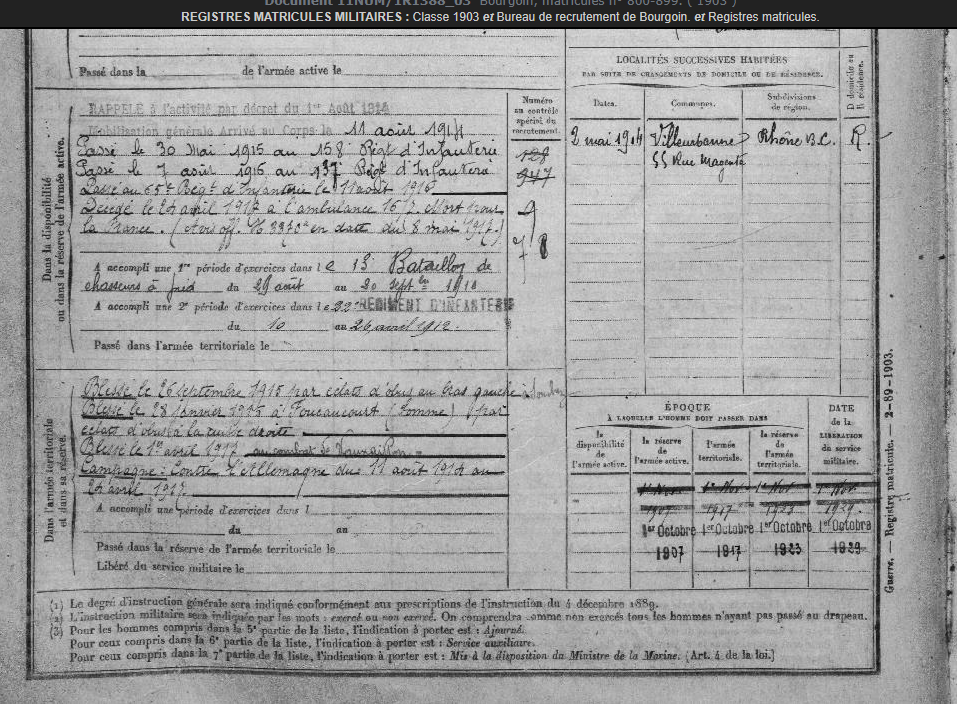 Document 11NUM/1R1388_03 Bourgoin, matricules n° 800-899. ( 1903 )
REGISTRES MATRICULES MILITAIRES : Classe 1903 et Bureau de recrutement de Bourgoin. et Registres matricules.
Passé dans la de l'armée active le
LOCALITÉS SUCCESSIVES HABITÉES
PAR SUITE DE CHANGEMENTS DE DOMICILE OU DE RÉSIDENCE.
D domicile ou R résidence.
Dates.
Communes.
Subdivisions de région.
2 mai 1914
Villeurbanne
55 Rue Magenta
Rhône B.C.
R.
Dans la disponibilité
ou dans la réserve de l'armée active.
Numéro
au contrôle
spécial du
recrutement.
128
947
9
RAPPELÉ à l'activité par décret du 1er Août 1914
Mobilisation générale Arrivé au Corps le 11 août 1914
Passé le 30 Mai 1915 au 158e Régt d'Infanterie
Passé le 7 août 1916 au 157e Régt d'Infanterie
Passé au 55e Régt d'Infanterie le 11 août 1916
Décédé le 24 avril 1917 à l'ambulance 15/7. Mort pour
la France. (Avis off. N 3370 en date du 8 mai 1917.)
A accompli une 1re période d'exercices dans le 13 Bataillon de
chasseurs à pied du 29 août au 20 septbre 1910
A accompli une 2e période d'exercices dans le 22e RÉGIMENT D'INFANTERIE
du 10 au 26 avril 1912.
Passé dans l'armée territoriale le
Dans l'armée territoriale
et dans sa réserve.
Blessé le 26 septembre 1915 par éclats d'obus au bras gauche à
Blessé le 28 janvier 1916 à Foucaucourt (Somme) par
éclats d'obus à la cuisse droite
Blessé le 1er avril 1917 au combat de Vauxaillon
Campagne : Contre l'Allemagne du 11 août 1914 au
24 avril 1917
A accompli une période d'exercices dans l
du au
Passé dans la réserve de l'armée territoriale le
Libéré du service militaire le
ÉPOQUE
À LAQUELLE L'HOMME DOIT PASSER DANS
DATE
de la
LIBÉRATION
du service
militaire.
la
disponibilité
de
l'armée active.
la réserve
de
l'armée active.
l'armée
territoriale.
la réserve
de
l'armée
territoriale.
1er Nov. 1er Nov. 1er Nov. 1er Nov.
1907 1917 1923 1929
1er Octobre 1er Octobre 1er Octobre 1er Octobre
1907 1917 1923 1929
Guerre. — Registre matricule. — 2-89-1903.
(1) Le degré d'instruction générale sera indiqué conformément aux prescriptions de l'instruction du 4 décembre 1889.
(2) L'instruction militaire sera indiquée par les mots : exercé ou non exercé. On comprendra comme non exercés tous les hommes n'ayant pas passé au drapeau.
(3) Pour les hommes compris dans la 5e partie de la liste, l'indication à porter est : Ajourné.
Pour ceux compris dans la 6e partie de la liste, l'indication à porter est : Service auxiliaire.
Pour ceux compris dans la 7e partie de la liste, l'indication à porter est : Mis à la disposition du Ministre de la Marine. (Art. 4 de la loi.]